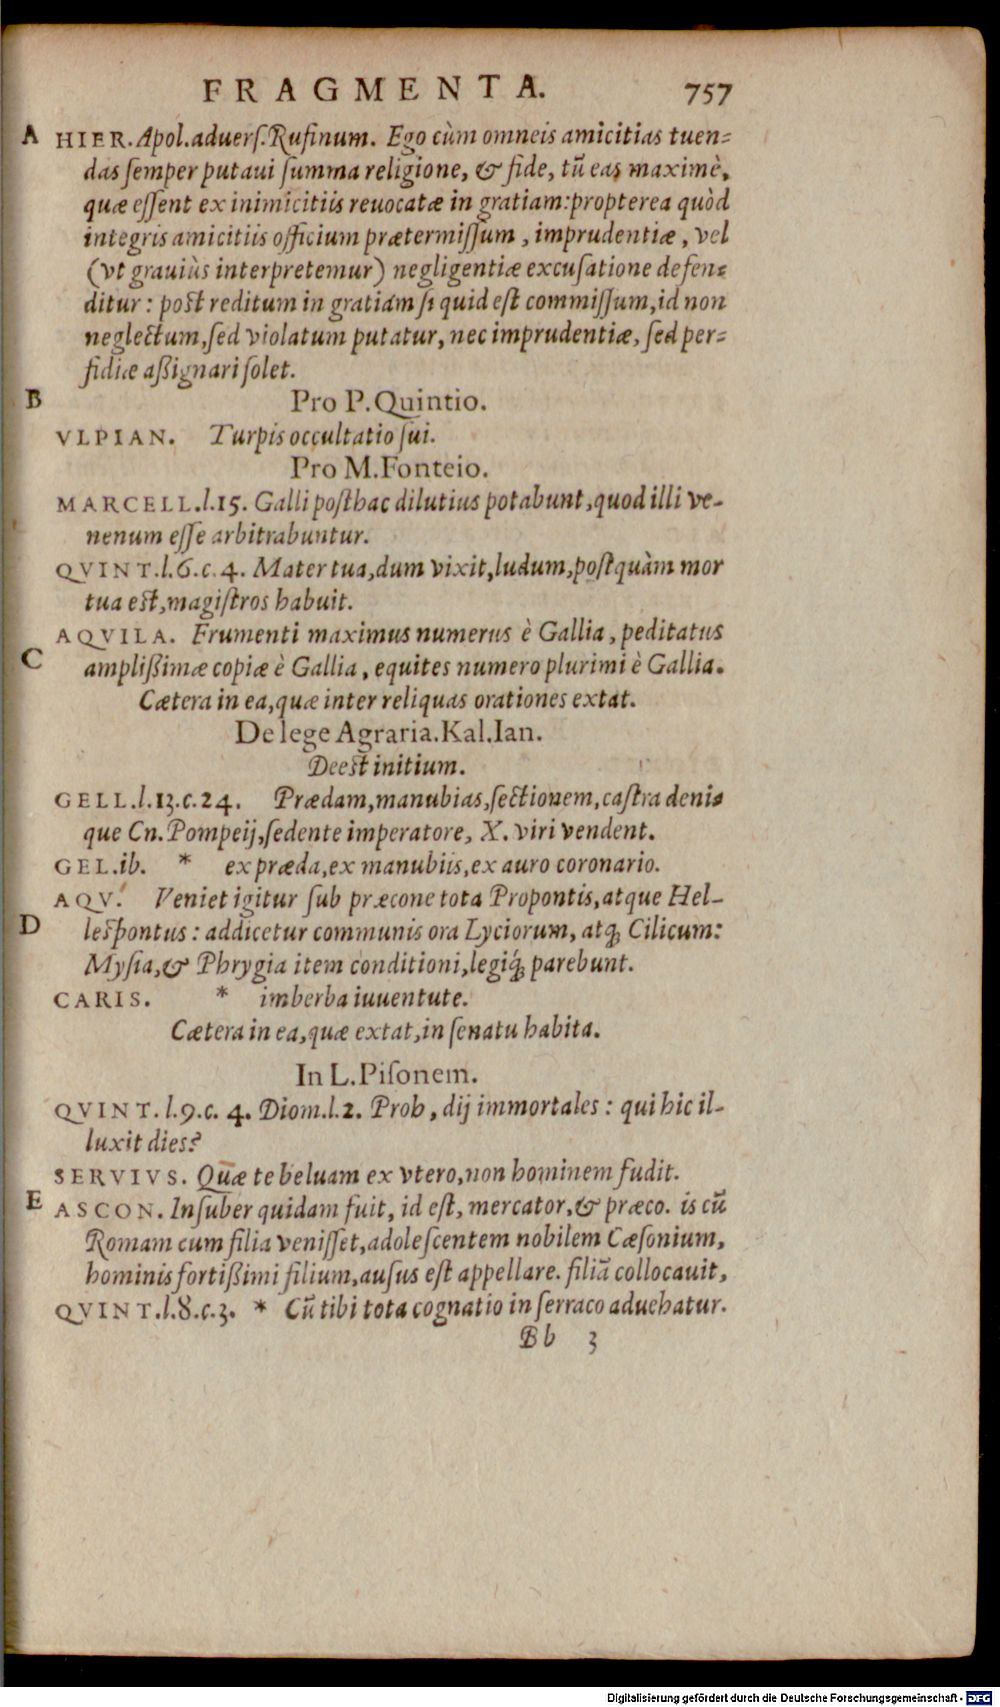 FRAGMENTA. 757
A HIER. Apol. aduers. Rufinum. Ego cùm omneis amicitias tuen=
das semper putaui summa religione, & fide, tū eas maximè,
quæ essent ex inimicitiis reuocatæ in gratiam: propterea quòd
integris amicitiis officium prætermissum, imprudentiæ, vel
(vt grauiùs interpretemur) negligentiæ excusatione defen=
ditur: post reditum in gratiam si quid est commissum, id non
neglectum, sed violatum putatur, nec imprudentiæ, sed per=
fidiæ aßignari solet.
B Pro P. Quintio.
VLPIAN. Turpis occultatio sui.
Pro M. Fonteio.
MARCELL. l. 15. Galli posthac dilutius potabunt, quod illi ve-
nenum esse arbitrabuntur.
QVINT. l. 6. c. 4. Mater tua, dum vixit, ludum, postquàm mor
tua est, magistros habuit.
AQVILA. Frumenti maximus numerus è Gallia, peditatus
C amplißimæ copiæ è Gallia, equites numero plurimi è Gallia.
Cætera in ea, quæ inter reliquas orationes extat.
De lege Agraria. Kal. Ian.
Deest initium.
GELL. l. 13. c. 24. Prædam, manubias, sectionem, castra deni=
que Cn. Pompeij, sedente imperatore, X. viri vendent.
GEL. ib. * ex præda, ex manubiis, ex auro coronario.
AQV. Veniet igitur sub præcone tota Propontis, atque Hel-
D lespontus: addicetur communis ora Lyciorum, atq; Cilicum:
Mysia, & Phrygia item conditioni, legiq́; parebunt.
CARIS. * imberba iuuentute.
Cætera in ea, quæ extat, in senatu habita.
In L. Pisonem.
QVINT. l. 9. c. 4. Diom. l. 2. Proh, dij immortales: qui hic il-
luxit dies?
SERVIVS. Quæ te beluam ex vtero, non hominem fudit.
E ASCON. Insuber quidam fuit, id est, mercator, & præco. is cū
Romam cum filia venisset, adolescentem nobilem Cæsonium,
hominis fortißimi filium, ausus est appellare. filiā collocauit,
QVINT. l. 8. c. 3. * Cū tibi tota cognatio in serraco aduehatur.
Bb 3
Digitalisierung gefördert durch die Deutsche Forschungsgemeinschaft - DFG